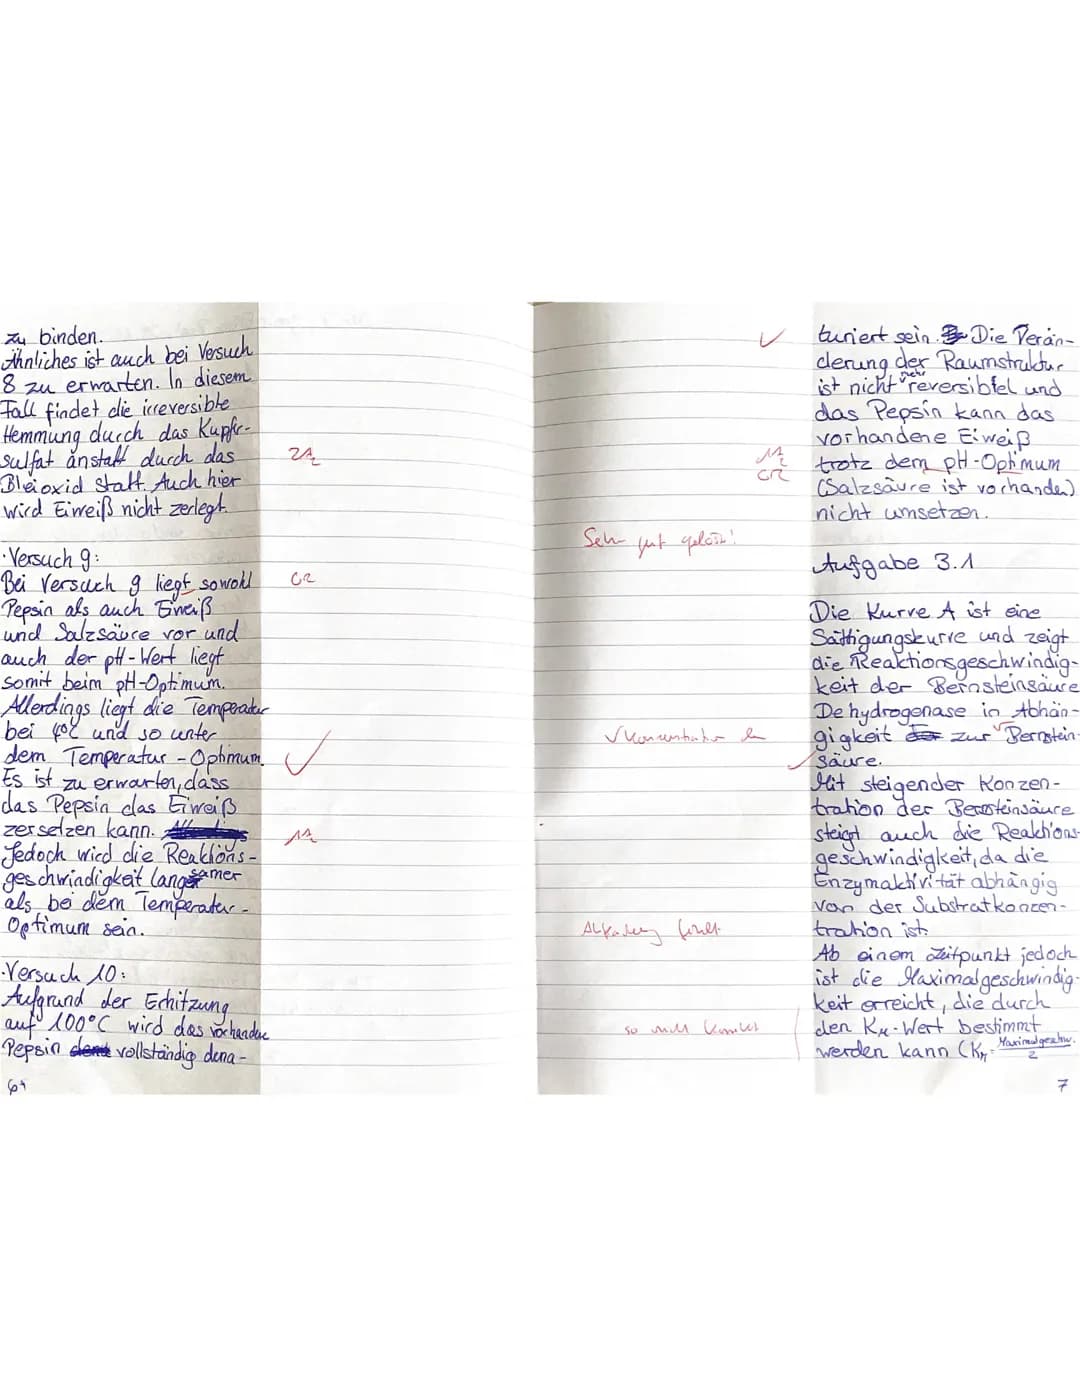 zu binden.
Ähnliches ist auch bei Versuch
8 zu erwarten. In diesem
Fall findet die irreversible
Hemmung durch das Kupfer-
sulfat anstatt durch das
Bleioxid statt. Auch hier
wird Eiweiß nicht zerlegt.
· Versuch 9:
Bei Versuch 9 liegt sowohl
Pepsin als auch Eiweiß
und Salzsäure vor und
auch der pH-Wert liegt
somit beim pH-Optimum.
Allerdings liegt die Temperatur
bei 4°C und so unter
dem Temperatur-Optimum.
Es ist zu erwarten, dass
das Pepsin das Eiweiß
zersetzen kann.
Jedoch wird die Reaktions-
geschwindigkeit langsamer
als bei dem Temperatur-
Optimum sein.
· Versuch 10:
Aufgrund der Erhitzung
auf 100°C wird das vorhandene
Pepsin vollständig dena-
turiert sein. Die Verän-
derung der Raumstruktur
ist nicht mehr reversibel und
das Pepsin kann das
vorhandene Eiweiß
trotz dem pH-Optimum
(Salzsäure ist vorhanden)
nicht umsetzen.
Sehr gut gelöst!
Aufgabe 3.1
Die Kurve A ist eine
Sättigungskurve und zeigt
die Reaktionsgeschwindig-
keit der Bernsteinsäure
Dehydrogenase in Abhän-
gigkeit zur Bernstein-
√ Konzentration der
säure.
Mit steigender Konzen-
tration der Bernsteinsäure
steigt auch die Reaktions-
geschwindigkeit, da die
Enzymaktivität abhängig
von der Substratkonzen-
tration ist.
Ab einem Zeitpunkt jedoch
ist die Maximalgeschwindig-
keit erreicht, die durch
den KM-Wert bestimmt
so nicht korrekt
werden kann (KM = Maximalgeschw. / 2
7